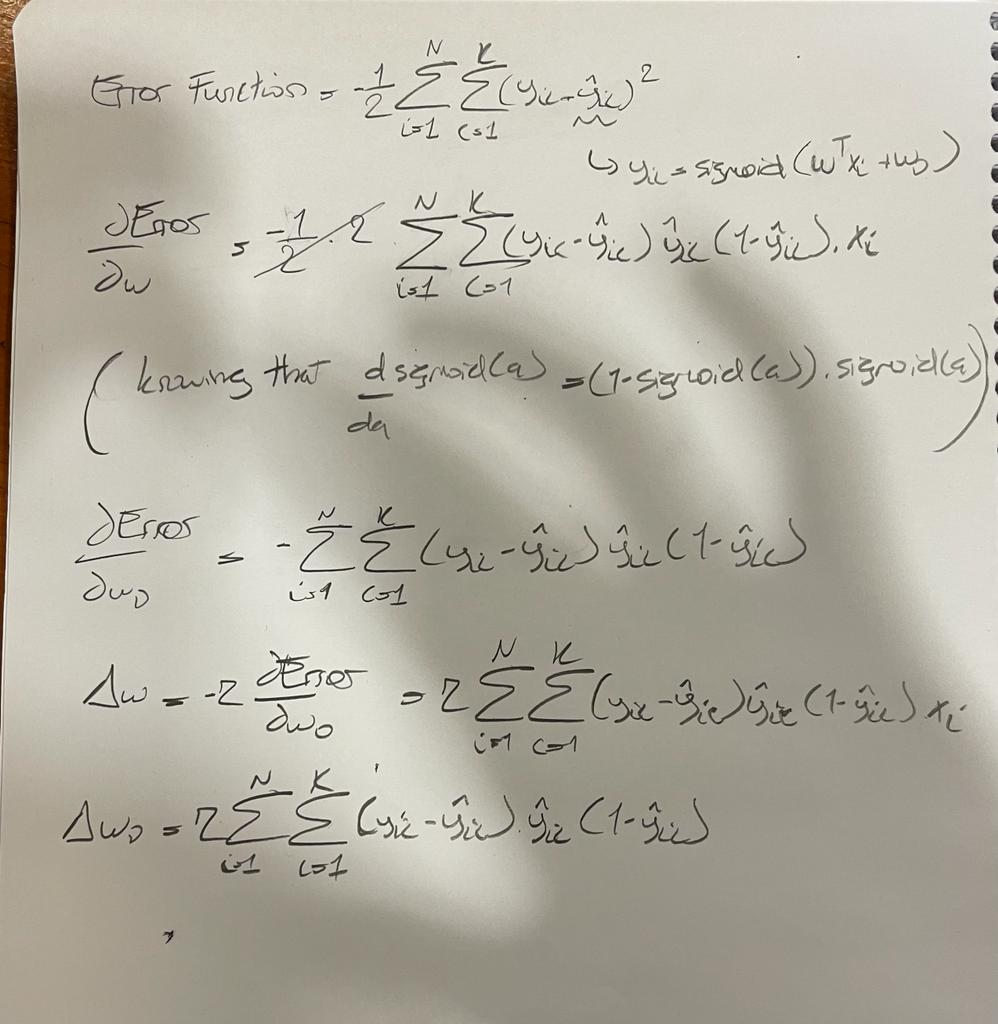 Error Function = -1/2 Σ_{i=1}^{N} Σ_{c=1}^{K} (y_ic - ŷ_ic)²
↳ y_ic = sigmoid (w^T x_i + w_0)
∂Error/∂w = -1/2 · 2 Σ_{i=1}^{N} Σ_{c=1}^{K} (y_ic - ŷ_ic) ŷ_ic (1-ŷ_ic) . x_i
(knowing that d sigmoid(a)/da = (1-sigmoid(a)) . sigmoid(a))
∂Error/∂w_0 = - Σ_{i=1}^{N} Σ_{c=1}^{K} (y_ic - ŷ_ic) ŷ_ic (1-ŷ_ic)
Δw = -η ∂Error/∂w_0 = η Σ_{i=1}^{N} Σ_{c=1}^{K} (y_ic - ŷ_ic) ŷ_ic (1-ŷ_ic) x_i
Δw_0 = η Σ_{i=1}^{N} Σ_{c=1}^{K} (y_ic - ŷ_ic) . ŷ_ic (1-ŷ_ic)